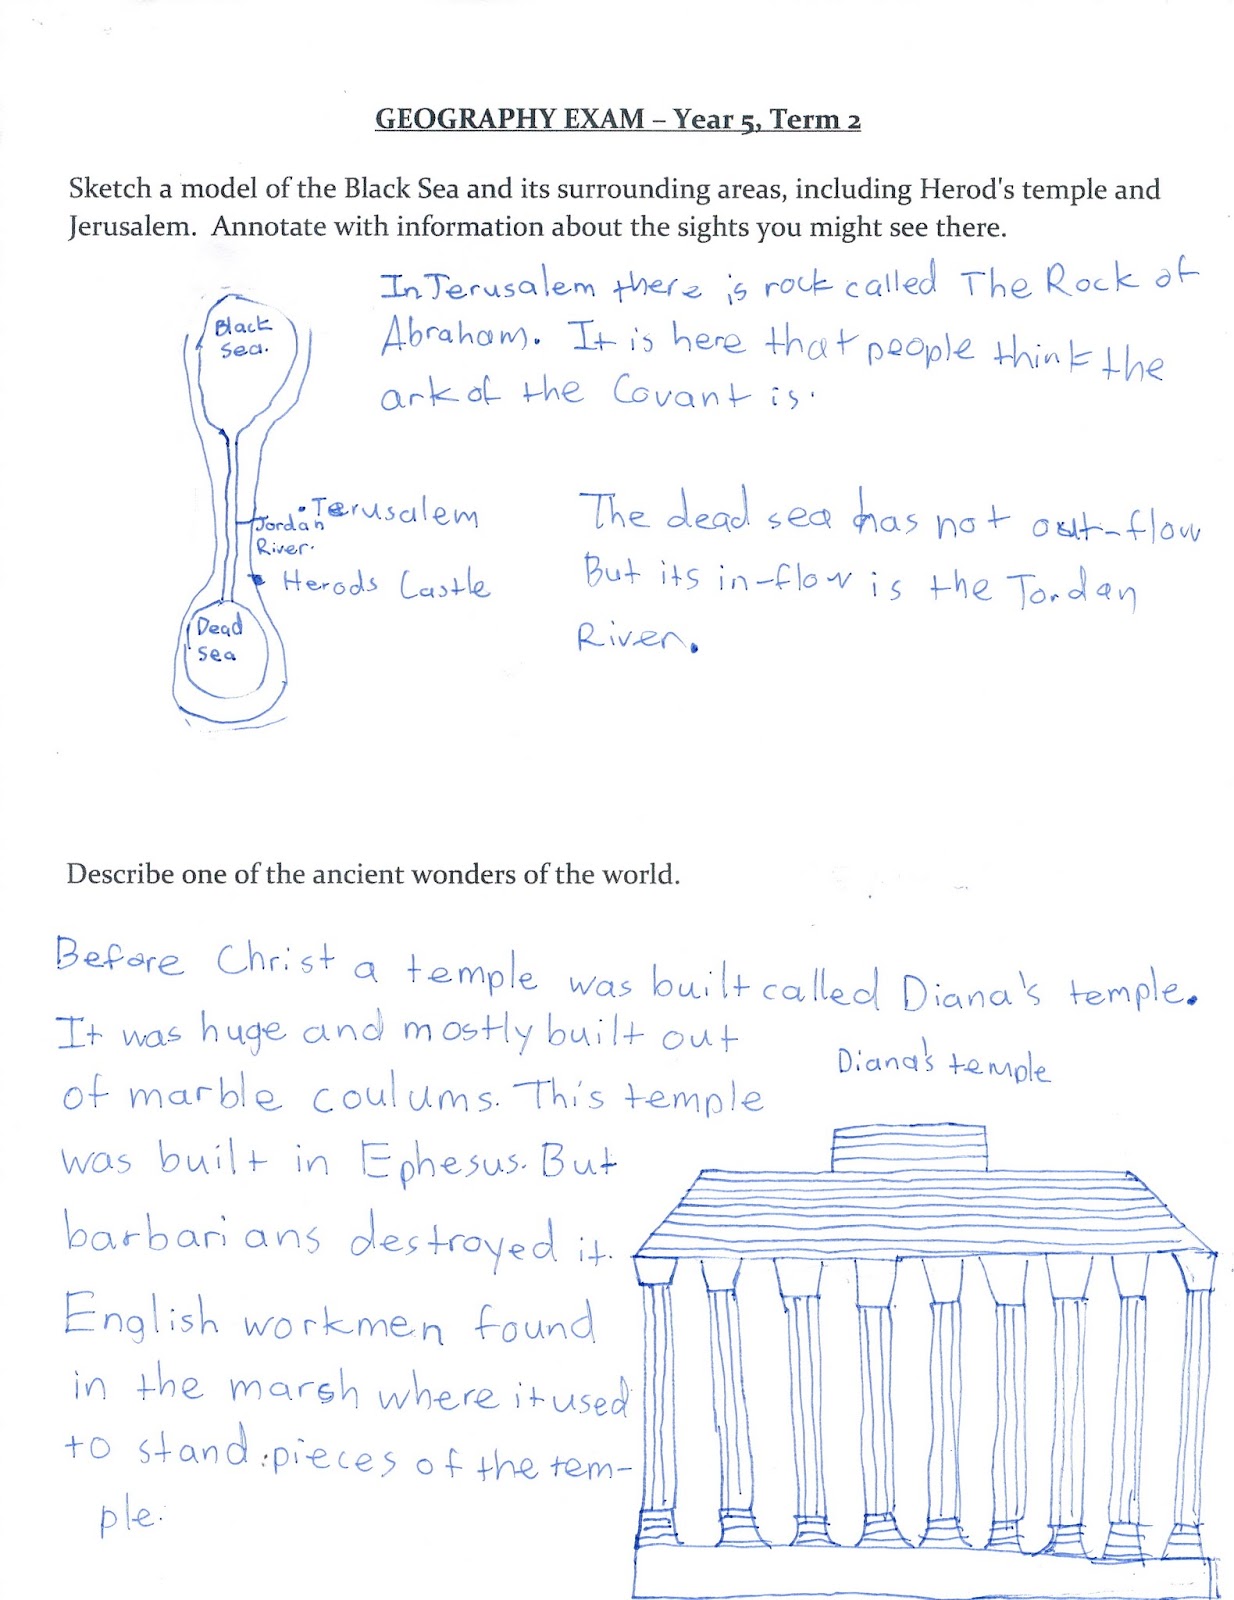 GEOGRAPHY EXAM – Year 5, Term 2
Sketch a model of the Black Sea and its surrounding areas, including Herod's temple and
Jerusalem.  Annotate with information about the sights you might see there.
In Jerusalem there is rock called The Rock of
Abraham. It is here that people think the
ark of the Covant is.
Black
Sea.
Jerusalem
Jordan
River.
Herods Castle
Dead
Sea
The dead sea has not out-flow
But its in-flow is the Jordan
River.
Describe one of the ancient wonders of the world.
Before Christ a temple was built called Diana's temple.
It was huge and mostly built out
of marble coulums. This temple
was built in Ephesus. But
barbarians destroyed it.
English workmen found
in the marsh where it used
to stand : pieces of the tem-
ple.
Diana's temple